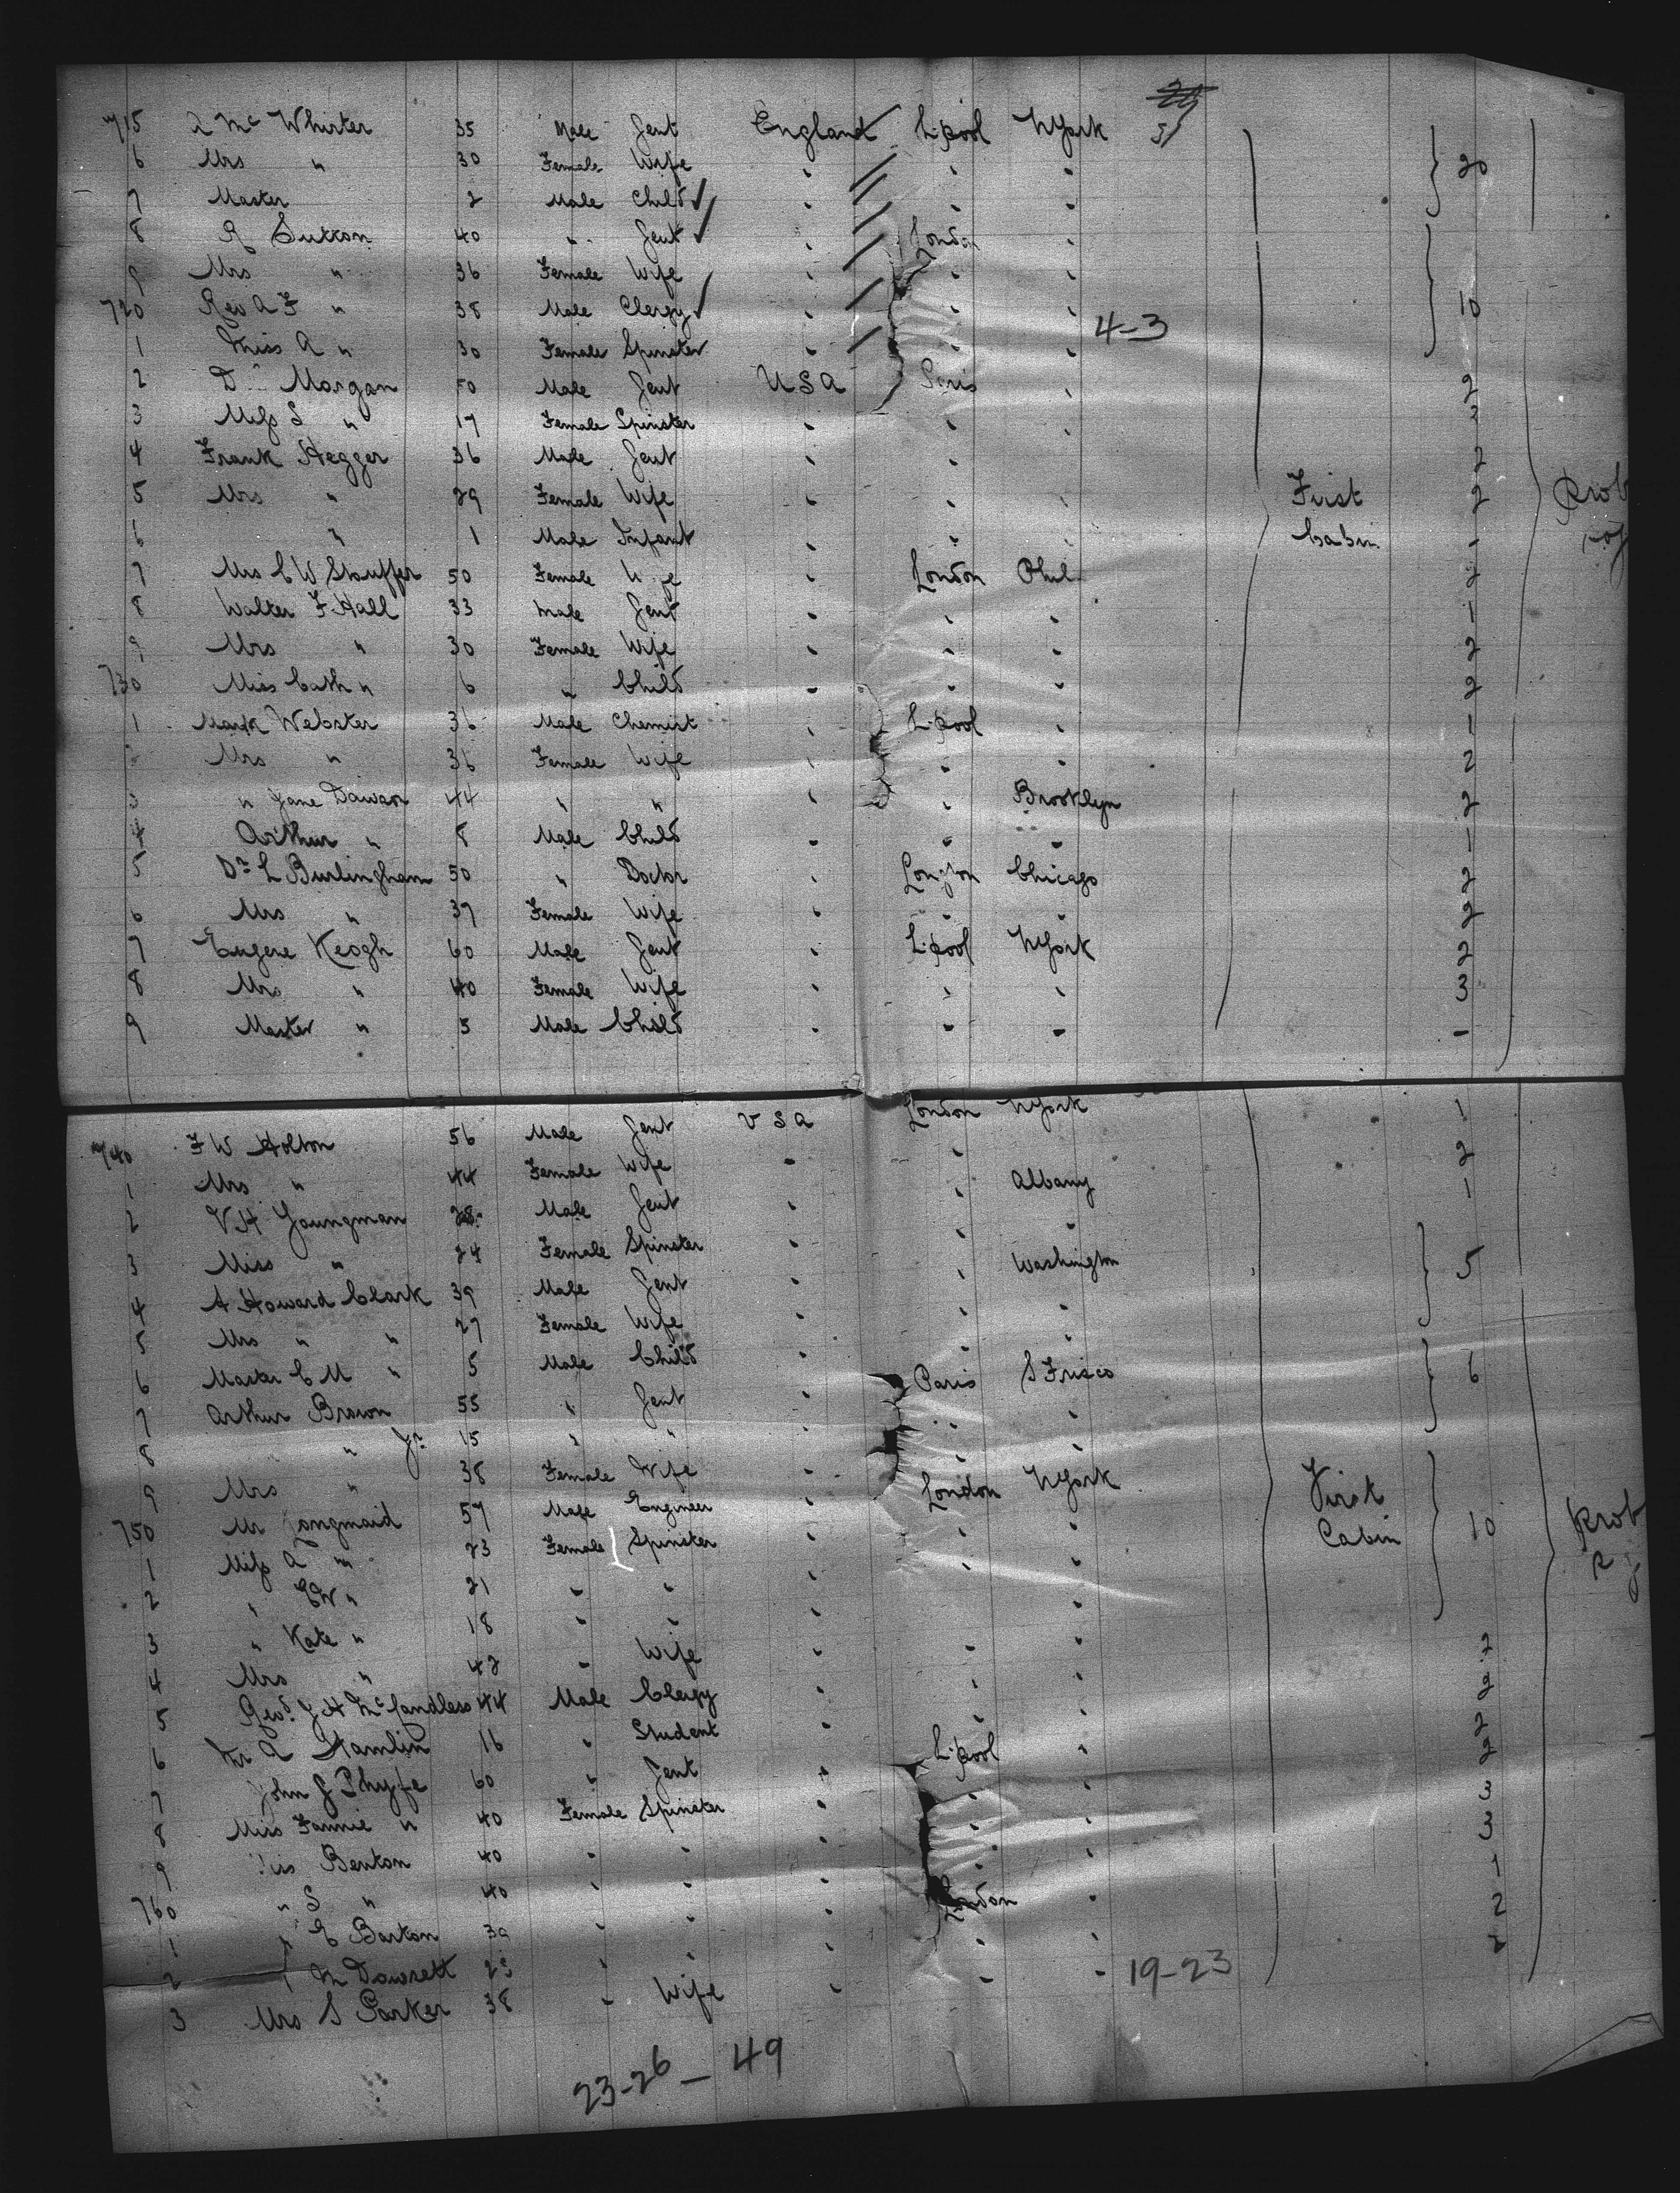 715 R Mc Whirter 35 Male Gent England L'pool NYork
6 Mrs " 30 Female Wife " " " 20
7 Master 2 Male Child " " "
8 R Sutton 40 " Gent " London "
9 Mrs " 36 Female Wife " " "
720 Rev A F " 38 Male Clergy " " " 10
4-3
1 Miss A " 30 Female Spinster " " "
2 D Morgan 50 Male Gent USA Paris " 2
3 Miss S " 17 Female Spinster " " " 2
4 Frank Hegger 36 Male Gent " " 2
5 Mrs " 29 Female Wife " " " 2
First Cabin
6 " 1 Male Infant " " " -
7 Mrs C W Stouffer 50 Female Wife " London Phil 2
8 Walter F Hall 33 Male Gent " " " 1
9 Mrs " 30 Female Wife " " " 2
730 Miss Cath " 6 " Child " " " 2
1 Mark Webster 36 Male Chemist " L'pool " 1
2 Mrs " 36 Female Wife " " " 2
3 " Jane Dawson 44 " " " " Brooklyn 2
4 Arthur " 8 Male Child " " " 1
5 Dr L Burlingham 50 " Doctor " London Chicago 2
6 Mrs " 37 Female Wife " " " 2
7 Eugene Keogh 60 Male Gent " L'pool NYork 2
8 Mrs " 40 Female Wife " " " 3
9 Master " 5 Male Child " " " -
740 F W Holton 56 Male Gent USA London NYork 1
1 Mrs " 44 Female Wife " " 2
2 V H Youngman 28 Male Gent " " Albany 1
3 Miss " 24 Female Spinster " " "
4 A Howard Clark 39 Male Gent " " Washington 5
5 Mrs " " 27 Female Wife " " "
6 Master C M " 5 Male Child " "
7 Arthur Brown 55 " Gent " Paris S Frisco 6
8 " Jr 15 " " " " "
9 Mrs " 38 Female Wife " "
750 Mr Longmaid 57 Male Engineer " London NYork
First Cabin 10
1 Miss A " 23 Female Spinster " " "
2 " EW " 21 " " " "
3 " Kate " 18 " " " "
4 Mrs " 42 " Wife " " "
5 Revd. J H McCandless 44 Male Clergy " " " 2
6 Mr A Hamlin 16 " Student " " 2
7 John G Phyfe 60 " Gent " L'pool " 2
8 Miss Fannie " 40 Female Spinster " " " 3
9 Miss Benton 40 " " " " 3
760 " S " 40 " " " " 1
1 " E Barton 39 " " " London " 2
2 " M Dowsett 23 " " " " " 2
3 Mrs S Parker 38 " Wife " " "
19-23
23-26 — 49